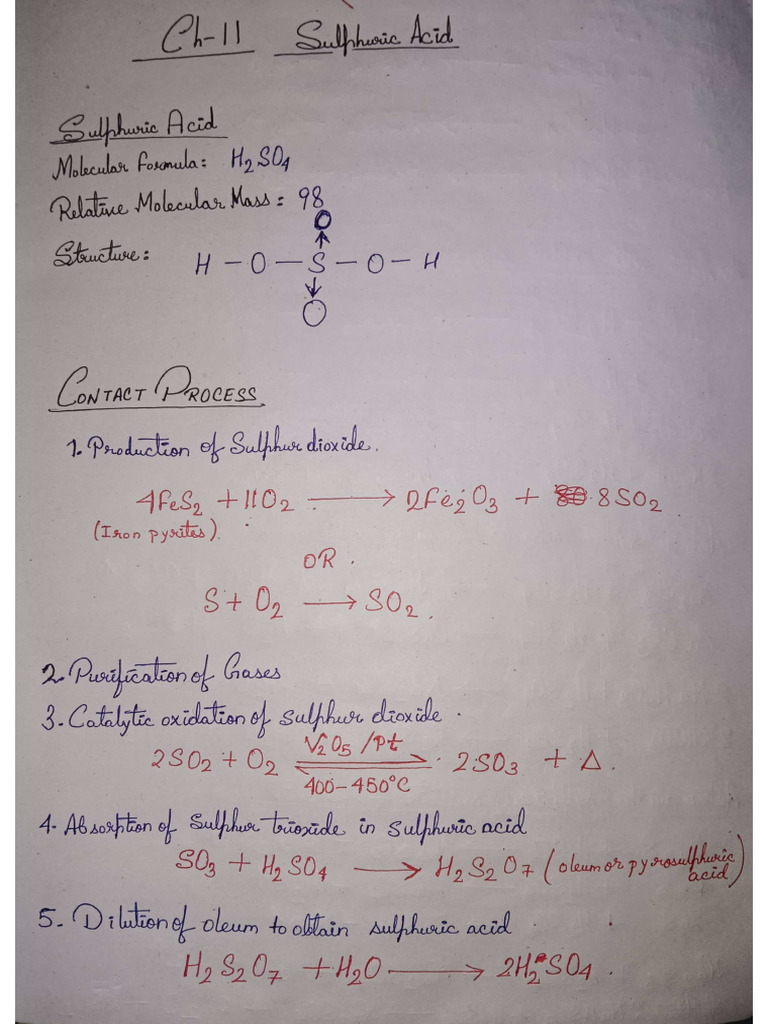 Ch-11 Sulphuric Acid
Sulphuric Acid
Molecular Formula: H2SO4
Relative Molecular Mass: 98
O
↑
Structure: H - O - S - O - H
↓
O
CONTACT PROCESS
1. Production of Sulphur dioxide.
4FeS2 + 11O2 → 2Fe2O3 + 8SO2
(Iron pyrites).
OR.
S + O2 → SO2.
2. Purification of Gases
3. Catalytic oxidation of sulphur dioxide.
V2O5 /Pt
2SO2 + O2 ⇌ 2SO3 + Δ.
400-450°C
4. Absorption of sulphur trioxide in sulphuric acid
SO3 + H2SO4 → H2S2O7 (oleum or pyrosulphuric
acid)
5. Dilution of oleum to obtain sulphuric acid
H2S2O7 + H2O → 2H2SO4.